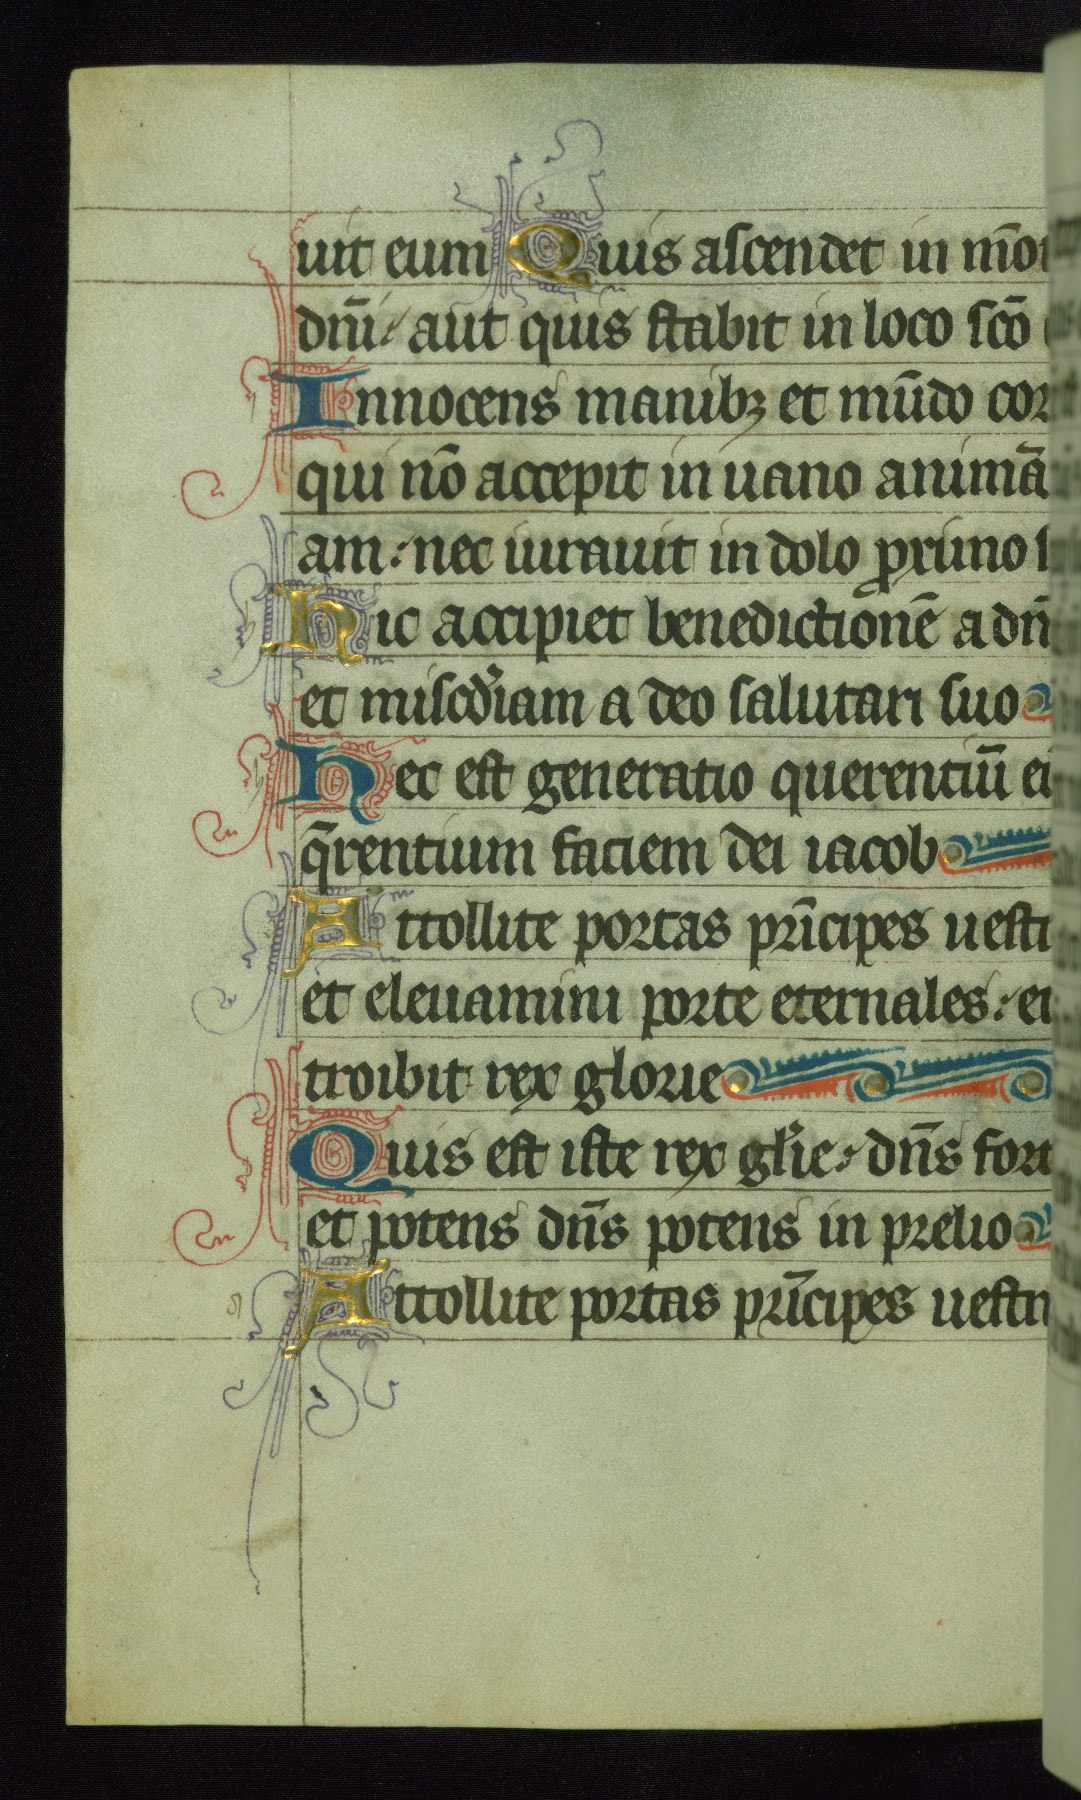 uit eum Quis ascendet in mo
dn̄i: aut quis stabit in loco sc̄o
Innocens manibꝫ et mūdo cor
qui nō accepit in uano animā
am: nec iurauit in dolo ꝓximo
hic accipiet benedictionē a dn̄
et misc̄diam a deo salutari suo
hec est generatio querentiū ei
q̄rentium faciem dei iacob
Attollite portas prīcipes uestr
et eleuamini porte eternales: et
troibit rex glorie
Quis est iste rex gl̄ie: dn̄s fort
et potens dn̄s potens in prelio
Attollite portas prīcipes uestr